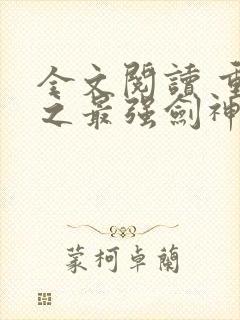 全文閱讀 重
之最强劍神
蒙柯卓蘭